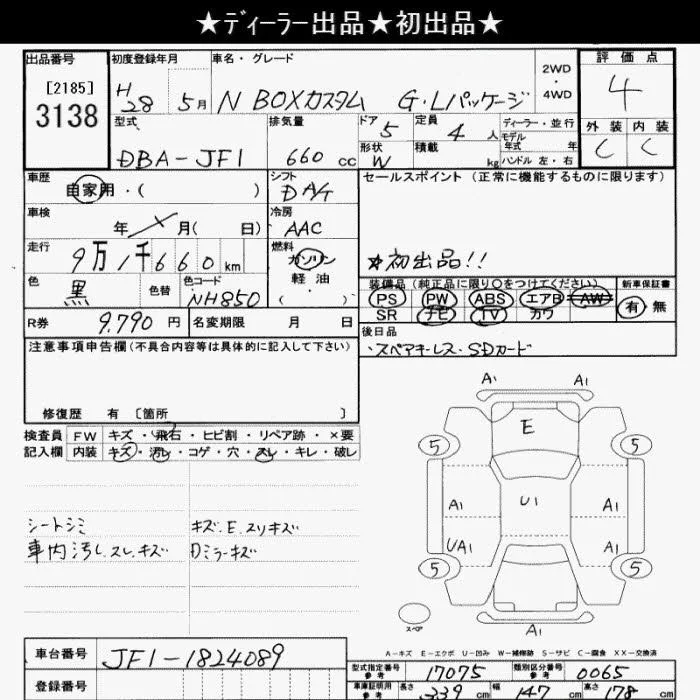 ★ディーラー出品★初出品★
出品番号 初度登録年月 車名・グレード 2WD・4WD 評価点
[2185] 3138 H28 5月 N BOXカスタム G・Lパッケージ 4
型式 排気量 ドア 5 定員 4人 ディーラー・並行 外装 内装
モデル年式 年
DBA-JF1 660cc 形状 W 積載 kg ハンドル 左・右 C C
車歴 自家用・( ) シフト DAT セールスポイント (正常に機能するものに限ります)
車検 年 月( 日) 冷房 AAC
走行 9万1千660km 燃料 ガソリン・軽油・( ) ★初出品!!
色 黒 色替 色コード NH850
装備品(純正品に限り〇をつけてください) 新車保証書
PS PW ABS エアB AW 有・無
SR ナビ TV カワ
R券 9,790円 名変期限 月 日 後日品
注意事項申告欄(不具合内容等は具体的に記入して下さい) ・スペアキーレス・SDカード
修復歴 有 [箇所 ]
検査員記入欄 FW キズ・飛石・ヒビ割・リペア跡・×要
内装 キズ・汚レ・コゲ・穴・スレ・キレ・破レ
A1 A1
E
5 5
A1 U1 A1
UA1 A1
5 5
A1
スペア
シートシミ キズ.E.スリキズ
車内汚レ.スレ.キズ Dミラーキズ
A-キズ E-エクボ U-凹み W-補修跡 S-サビ C-腐食 XX-交換済
車台番号 JF1-1824089
型式指定番号 参考 17075 類別区分番号 参考 0065
登録番号
車庫証明用 参考 長さ 339cm 幅 147cm 高さ 178cm